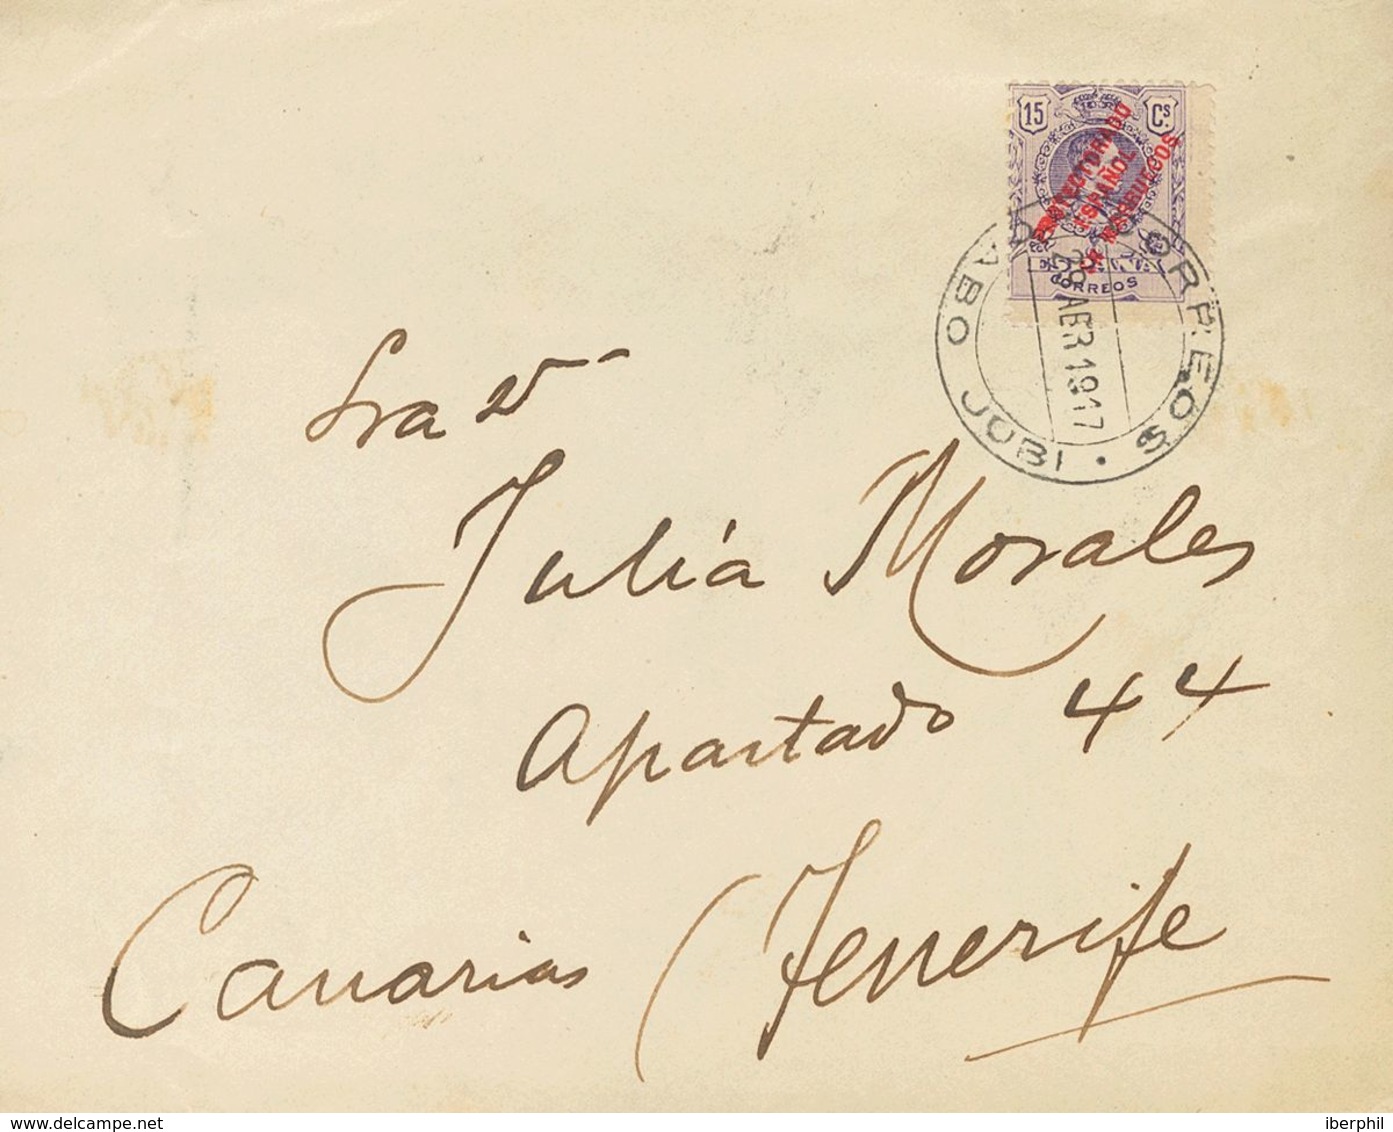 15 Cs.
PROTECTORADO
ESPAÑOL
EN MARRUECOS
ESPAÑA
CORREOS
CORREOS
CABO JUBI
28 ABR 1917
Sra Dª
Juliá Morales
Apartado 44
Canarias (Tenerife
delcampe.net
iberphil